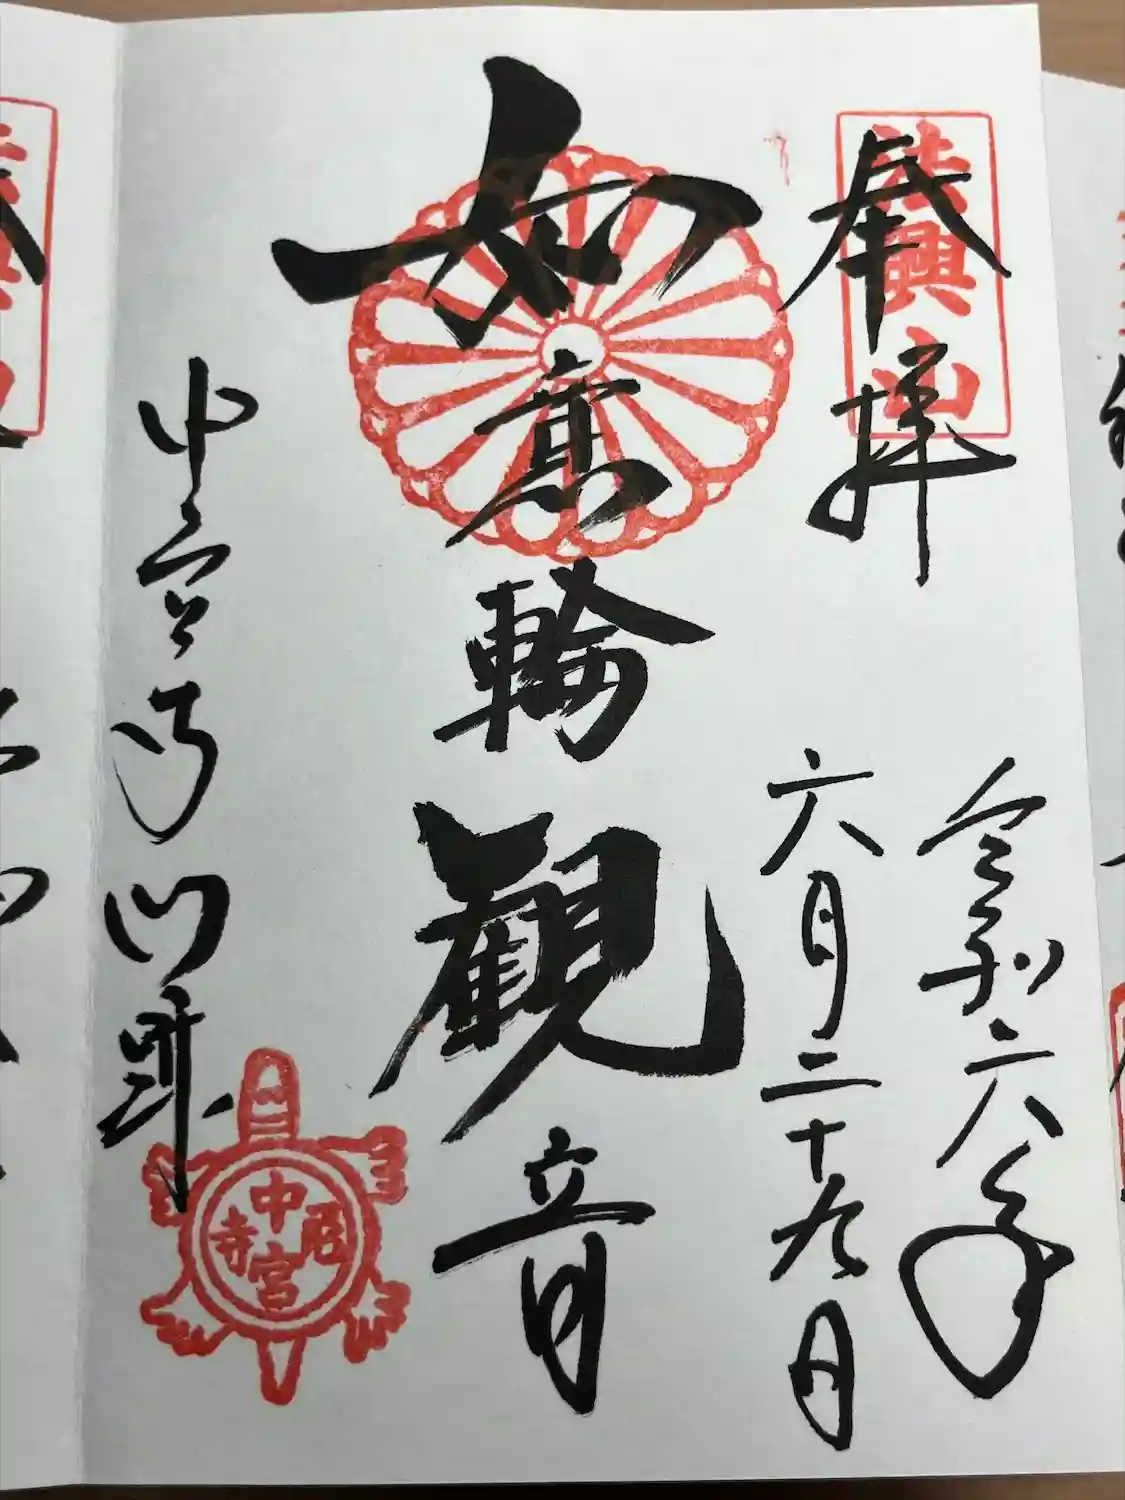 奉拝
法興山
令和六年
六月二十九日
如意輪観音
中宮寺門跡
中宮尼寺